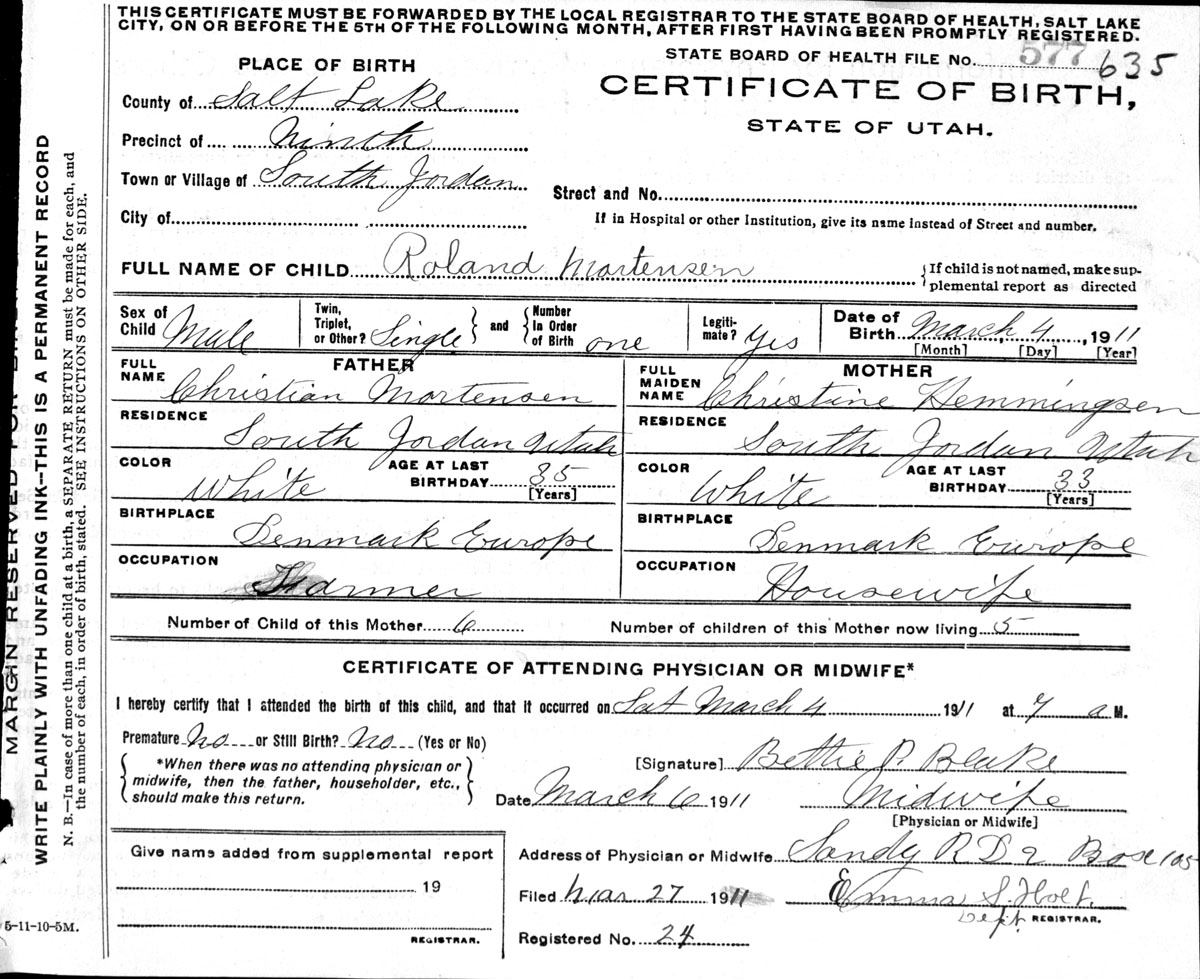 THIS CERTIFICATE MUST BE FORWARDED BY THE LOCAL REGISTRAR TO THE STATE BOARD OF HEALTH, SALT LAKE
CITY, ON OR BEFORE THE 5TH OF THE FOLLOWING MONTH, AFTER FIRST HAVING BEEN PROMPTLY REGISTERED.
STATE BOARD OF HEALTH FILE No. 577 635
PLACE OF BIRTH
CERTIFICATE OF BIRTH,
STATE OF UTAH.
County of Salt Lake
Precinct of Ninth
Town or Village of South Jordan
Street and No.
City of
If in Hospital or other Institution, give its name instead of Street and number.
FULL NAME OF CHILD Roland Mortensen
{If child is not named, make sup-
plemental report as directed
Sex of Child Male
Twin, Triplet, or Other? Single } and { Number In Order of Birth one
Legiti-mate? Yes
Date of Birth March 4, 1911
[Month] [Day] [Year]
FATHER
FULL NAME Christian Mortensen
RESIDENCE South Jordan Utah
COLOR White AGE AT LAST BIRTHDAY 35 [Years]
BIRTHPLACE Denmark Europe
OCCUPATION Farmer
MOTHER
FULL MAIDEN NAME Christine Hemmingsen
RESIDENCE South Jordan Utah
COLOR White AGE AT LAST BIRTHDAY 33 [Years]
BIRTHPLACE Denmark Europe
OCCUPATION Housewife
Number of Child of this Mother 6 Number of children of this Mother now living 5
CERTIFICATE OF ATTENDING PHYSICIAN OR MIDWIFE*
I hereby certify that I attended the birth of this child, and that it occurred on Sat March 4 1911 at 7 a M.
Premature No or Still Birth? No (Yes or No)
{ *When there was no attending physician or
midwife, then the father, householder, etc.,
should make this return. }
[Signature] Bettie P. Blake
Date March 6 1911 Midwife
[Physician or Midwife]
Give name added from supplemental report
19
REGISTRAR.
Address of Physician or Midwife Sandy R D 2 Box 105
Filed Mar 27 1911 Emma S. Holt
Dept. REGISTRAR.
Registered No. 24
5-11-10-5M.
MARGIN RESERVED FOR
WRITE PLAINLY WITH UNFADING INK—THIS IS A PERMANENT RECORD
N. B.—In case of more than one child at a birth, a SEPARATE RETURN must be made for each, and
the number of each, in order of birth, stated. SEE INSTRUCTIONS ON OTHER SIDE.